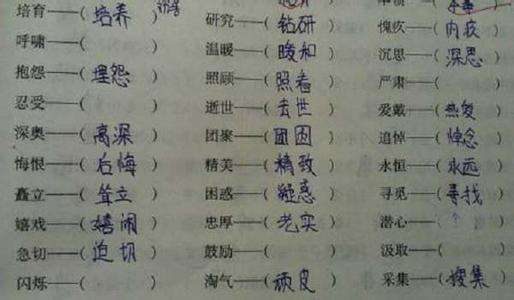 培育——(培养) 研究——(钻研) 愧疚——(内疚)
呼啸——( ) 温暖——(暖和) 沉思——(深思)
抱怨——(埋怨) 照顾——(照看) 严肃——( )
忍受——( ) 逝世——(去世) 爱戴——(热爱)
深奥——(高深) 团聚——(团圆) 追悼——(悼念)
悔恨——(后悔) 精美——(精致) 永恒——(永远)
矗立——(耸立) 困惑——(疑惑) 寻觅——(寻找)
嬉戏——(嬉闹) 忠厚——(老实) 潜心——(?)
急切——(迫切) 鼓励——( ) 汲取——( )
闪烁——( ) 淘气——(顽皮) 采集——(搜集)